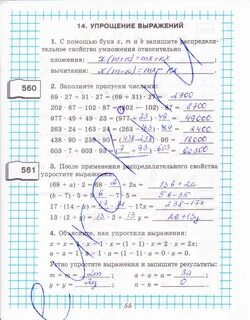 14. УПРОЩЕНИЕ ВЫРАЖЕНИЙ
1. С помощью букв x, m и k запишите распредели-
тельное свойство умножения относительно
сложения: x(m+k)=mx+kx
вычитания: x(m-k)=mx-kx
560
2. Заполните пропуски числами:
69 · 27 + 31 · 27 = (69 + 31) · 27 = 2700
202 · 87 − 102 · 87 = (202 − 102) · 87 = 8700
977 · 49 + 23 · 49 = (977 + 23) · 49 = 49000
438 · 24 − 338 · 24 = (438 − 338) · 24 = 2400
438 · 90 − 238 · 90 = (438 − 238) · 90 = 18000
603 · 7 + 603 · 93 = (7 + 93) · 603 = 60300
561
3. После применения распределительного свойства
упростите выражения:
(68 + a) · 2 = 68 · 2 + 2a = 136+2a
(b − 7) · 8 =
17 · (14 − k) = 17 · 14 − 17k = 238-17k
13 · (2 + y) = 13 · 2 + 13y = 26+13y
4. Объясните, как упростили выражения:
x + x = 1 · x + 1 · x = (1 + 1) · x = 2 · x = 2x;
a − a = 1 · a − 1 · a = (1 − 1) · a = 0 · a = 0.
Устно упростите выражения и запишите результаты:
m + m = 2m a + a + a = 3a
y + y = 2y a − a = 0
55